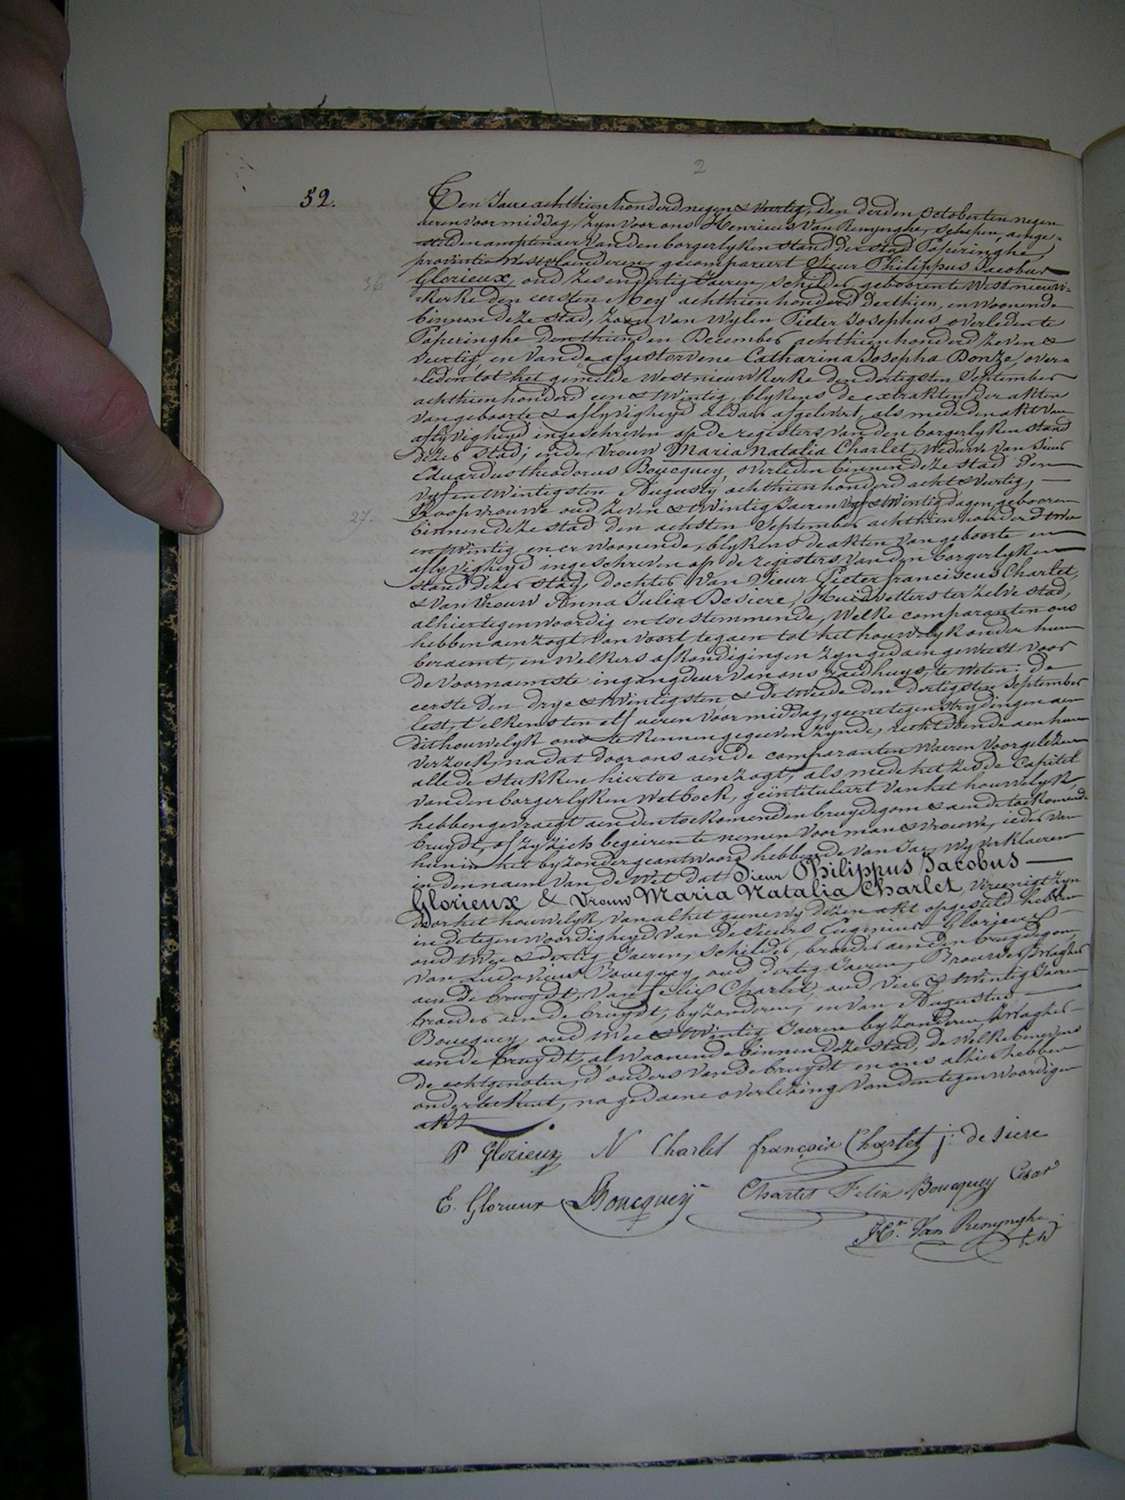 2
52.
Een Jaere achthien honderd negen & veertig, den derden October ten negen
ueren voormiddag, zyn voor ons Henricus Van Renynghe, schepen, ainge-
stelden amptenaer van den borgerlyken stand der stad Poperinghe,
provintie Westvlaenderen, gecompareert Sieur Philippus Jacobus
36 Glorieux, oud zes en dertig Jaeren, schilder, gebooren te Westnieuw-
kerke den eersten Mey achthien honderd derthien, en woonende
binnen deze stad, zoon van wylen Pieter Josephus overleden te
Poperinghe den thienden December achthien honderd zeven &
veertig, en van de afgestorvene Catharina Josepha Donze, over-
leden tot het gemelde Westnieuwkerke den dertigsten September
achthien honderd een & twintig, blykens de extrakten der akten
van geboorte & aflyvigheyd aldaer afgelevert, als mede den akt van
aflyvigheyd ingeschreven op de registers van den borgerlyken stand
dezer stad; ende vrouw Maria Natalia Charlet, weduwe van Sieur
Eduardus theodorus Boucquey overleden binnen deze stad den
vyf en twintigsten Augusty achthien honderd acht & veertig,
27. Koopvrouwe oud zeven & twintig Jaeren vyf & twintig dagen, gebooren
binnen deze stad den achsten September achthien honderd twee
en twintig, en er woonende, blykens de akten van geboorte en
aflyvigheyd ingeschreven op de registers van den borgerlyken
stand dezer stad, dochter van Sieur Pieter franciscus Charlet,
& van vrouw Anna Julia Desiere, Huidvetters ter zelve stad,
alhier tegenwoordig en toestemmende, Welke comparanten ons
hebben aenzogt van voort te gaen tot het houwelyk onder hun
beraemt, en welkers afkondigingen zyn gedaen geweest voor
de voornaemste ingangdeur van ons raedhuys, te weten: de
eerste den drye & twintigsten & de tweede den dertigsten September
lest, t'elkensten elf ueren voormiddag, geene tegenstrydingen aen
dit houwelyk ons te kennen gegeven zynde, rechtdoende aen hun
verzoek, na dat door ons aen de comparanten waeren voorgelezen
alle de stukken hiertoe aenzogt, als mede het zesde Capitel
van den borgerlyken Wetboek, geïntituleert van het houwelyk,
hebben gevraegt aen den toekomenden bruydegom & aen de toekomende
bruydt, of zy zich begeiren te nemen voor man & vrouwe, ieder van
hun in het byzonder geantwoord hebbende van Ja, wy verklaeren
in den naem van de Wet dat Sieur Philippus Jacobus
Glorieux & vrouw Maria Natalia Charlet vereenigt zyn
door het houwelyk, van al het geene wy dezen akt opgesteld hebben
in de tegenwoordigheyd van de Sieurs Eugenius Glorieux
oud twee & dertig Jaeren, schilder, broeder aen den bruydegom,
van Ludovicus Boucquey, oud dertig Jaeren, Brouwer, zwagher
aen de bruydt, van felix Charlet oud vier & twintig Jaeren
broeder aen de bruydt, byzonderen, en van Augustus
Boucquey, oud twee & twintig Jaeren byzonderen zwagher
aen de bruydt, al woonende binnen deze stad, de welke benevens
de echtgenoten, d'ouders van de bruydt en ons alhier hebben
onderteekent, na gedaene overlezing van den tegenwoordigen
akt
P Glorieux N Charlet françois Charlet j. desiere
E. Glorieux LBoucquey Charlet Felix Boucquey
Hri. Van Renynghe